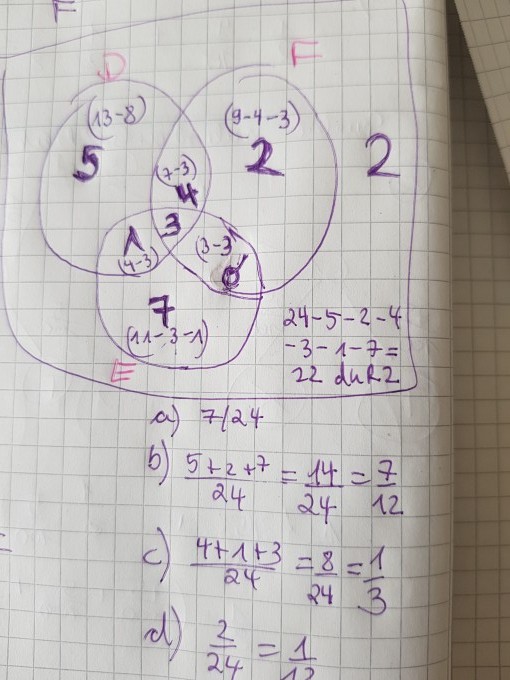 F
D
F
(13-8)
5
(9-4-3)
2
2
(7-3)
4
3
1
(4-3)
(3-3)
0
7
(11-3-1)
E
24-5-2-4
-3-1-7=
22
a) 7/24
b) 5+2+7/24 = 14/24 = 7/12
c) 4+1+3/24 = 8/24 = 1/3
d) 2/24 = 1/12